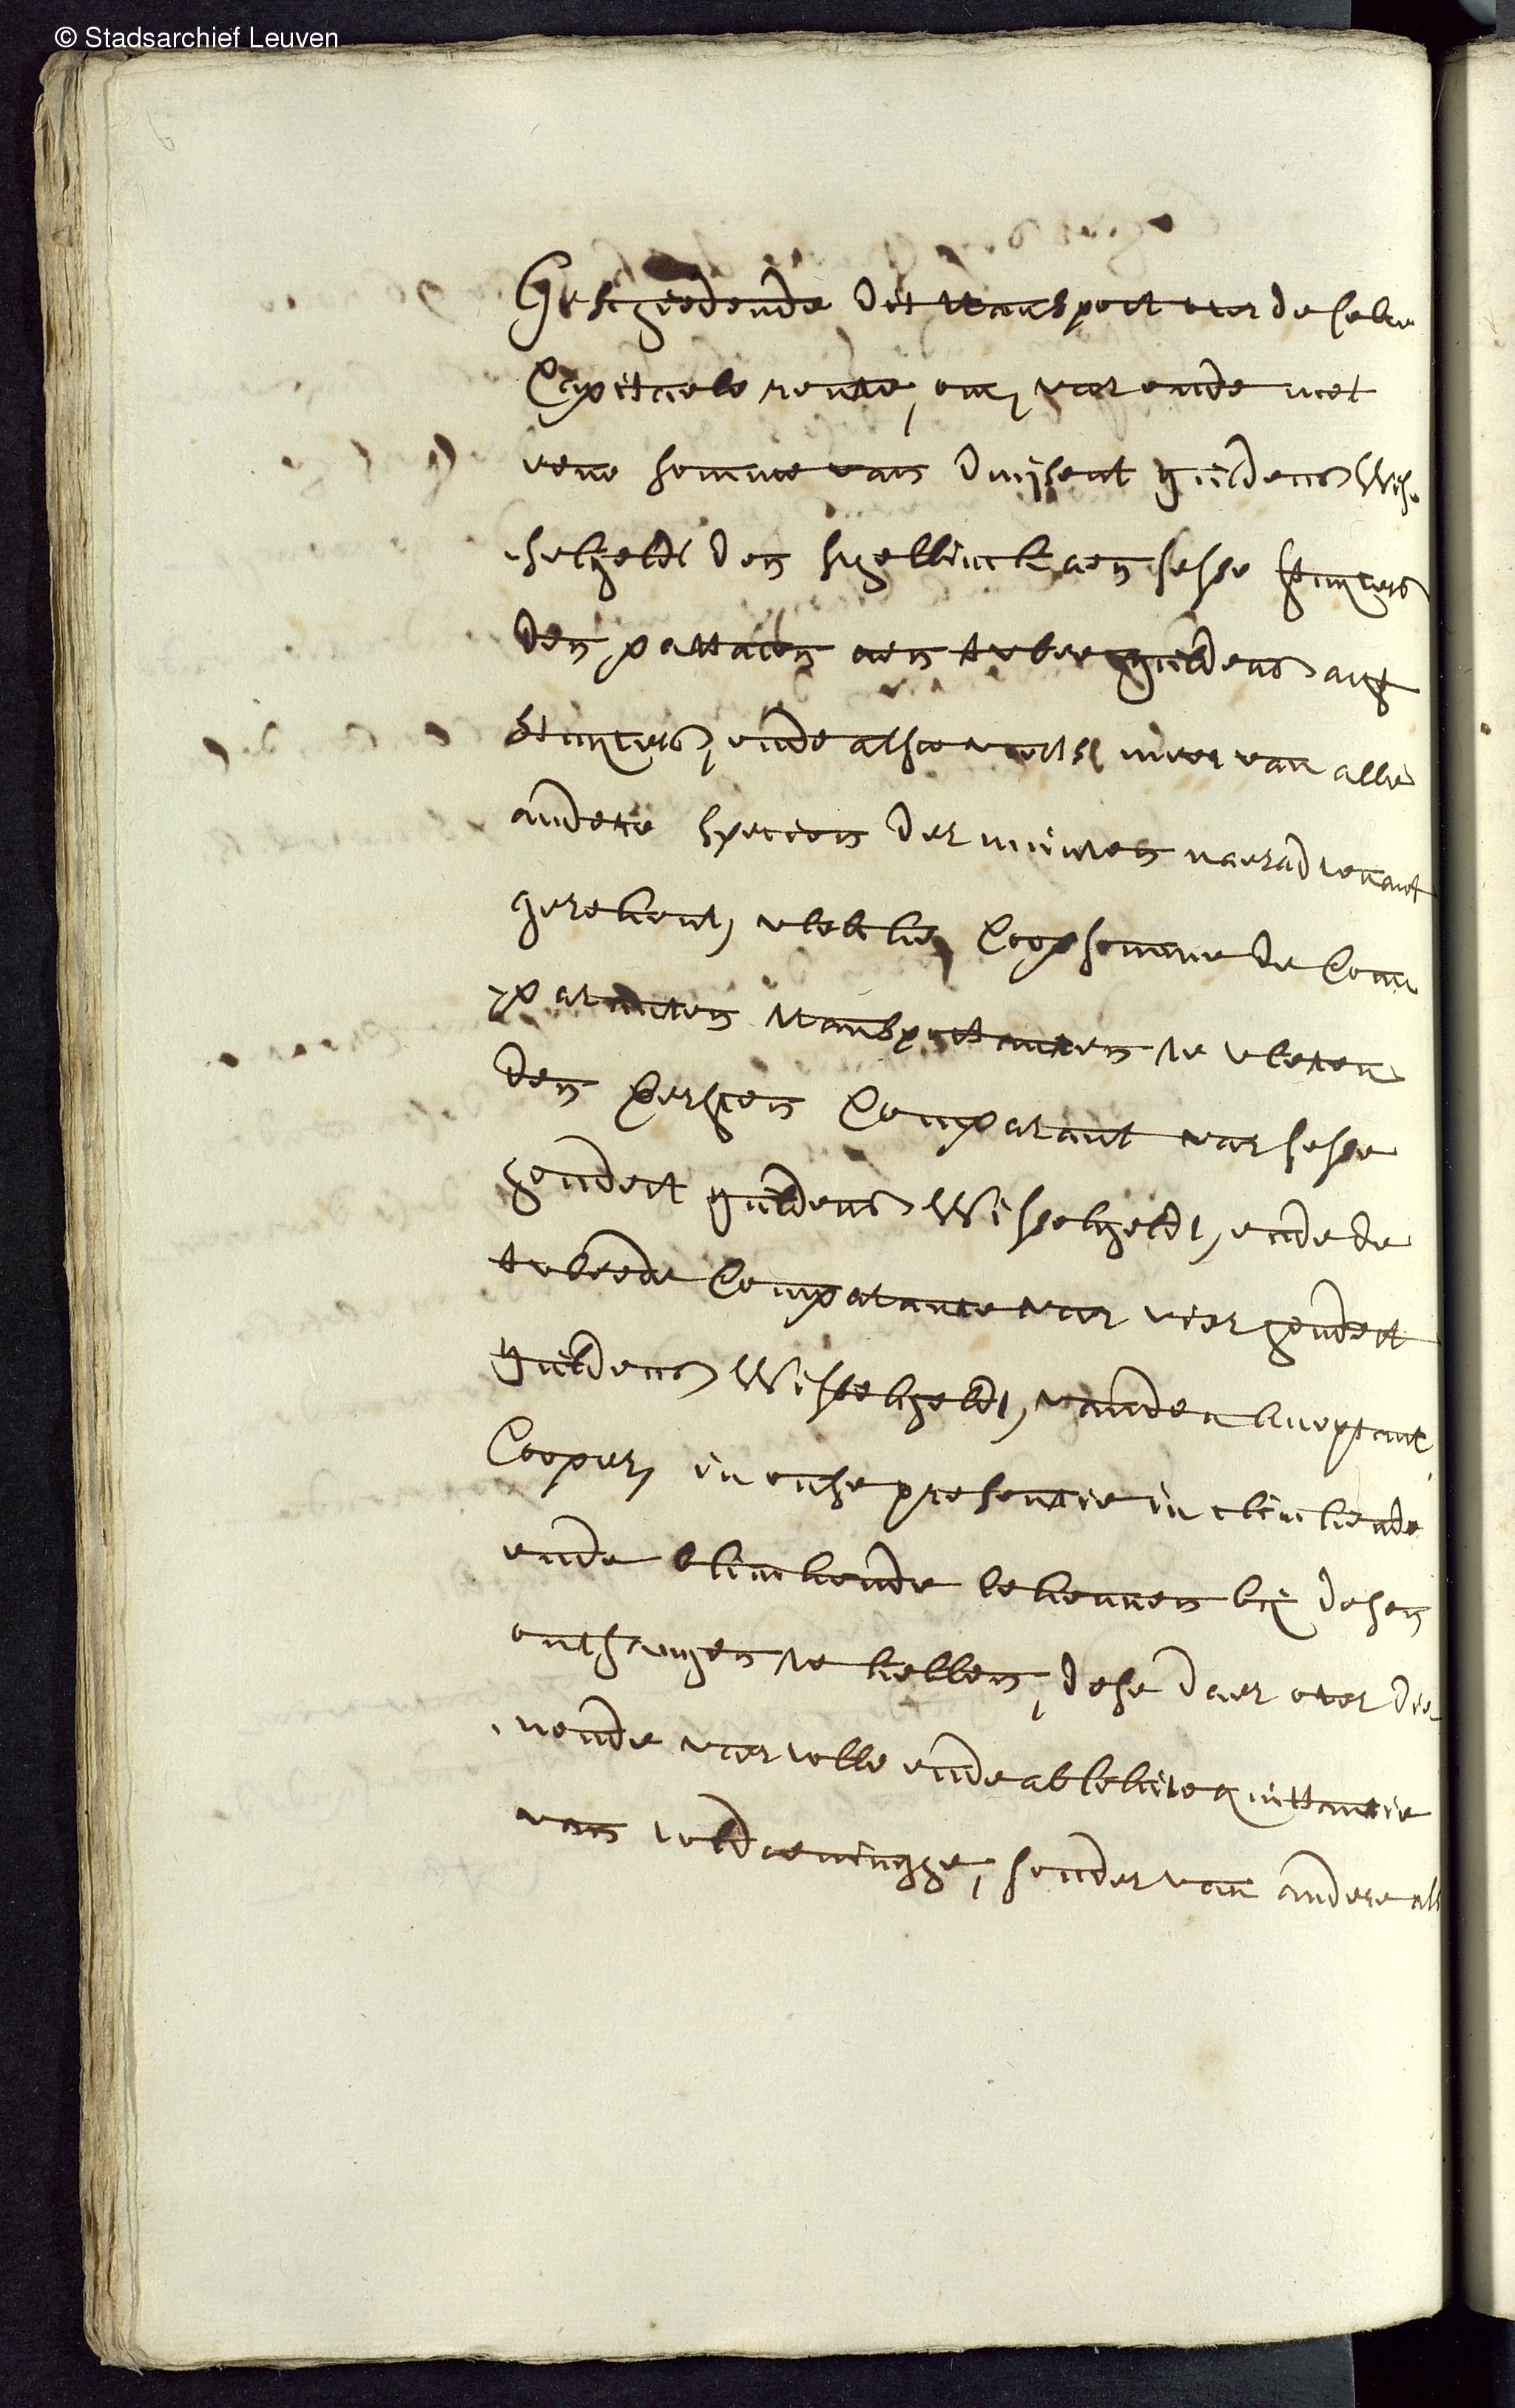 © Stadsarchief Leuven
Geschiedende dit transport over de selve
Capitaele rente, om, voor ende met
eene somme van duijsent guldens Wis-
-selgeldt den schellinck aen sesse stuyvers
den pattacon aen twee guldens acht
stuyvers, ende alsoo voorts meer van alle
andere specien der munten naer advenant
gerekent, welcke Coopsomme de Com-
-paranten transportanten te weten
den eersten Comparant voor sesse
hondert guldens Wisselgeldt, ende de
tweede Comparante voor vier hondert
guldens Wisselgeldt, van den acceptant
Cooper, in onse presentie in clinckende
ende blinckende bekennen by desen
ontfangen te hebben, dese daer over die-
-nende voor volle ende absolute quittantie
van voldoeninghe, sonder van andere als